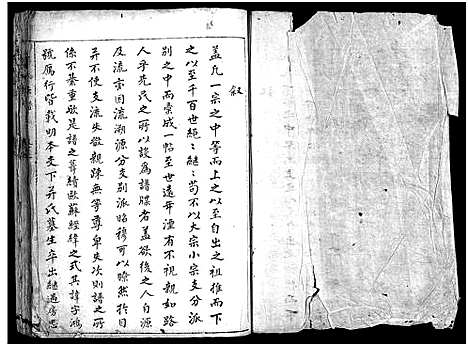 叙
盖凡一宗之中等而上之以至自出之祖推而下
之以至千百世绝〻継〻苟不以大宗小宗支分派
别之中而彙成一帖至世遠年湮有不視親如路
人乎先民之所以設為譜牒者盖欲後之人自源
及流當因流溯源分支别派昭穆可以瞻然於目
并不使支流失散親踈無等尊卑失次則譜之所
係不綦重欤是譜之葺續歐蘇經緯之式其諱字鴻
號雁行皆载明本支下并氏墓生卒出継過房悉